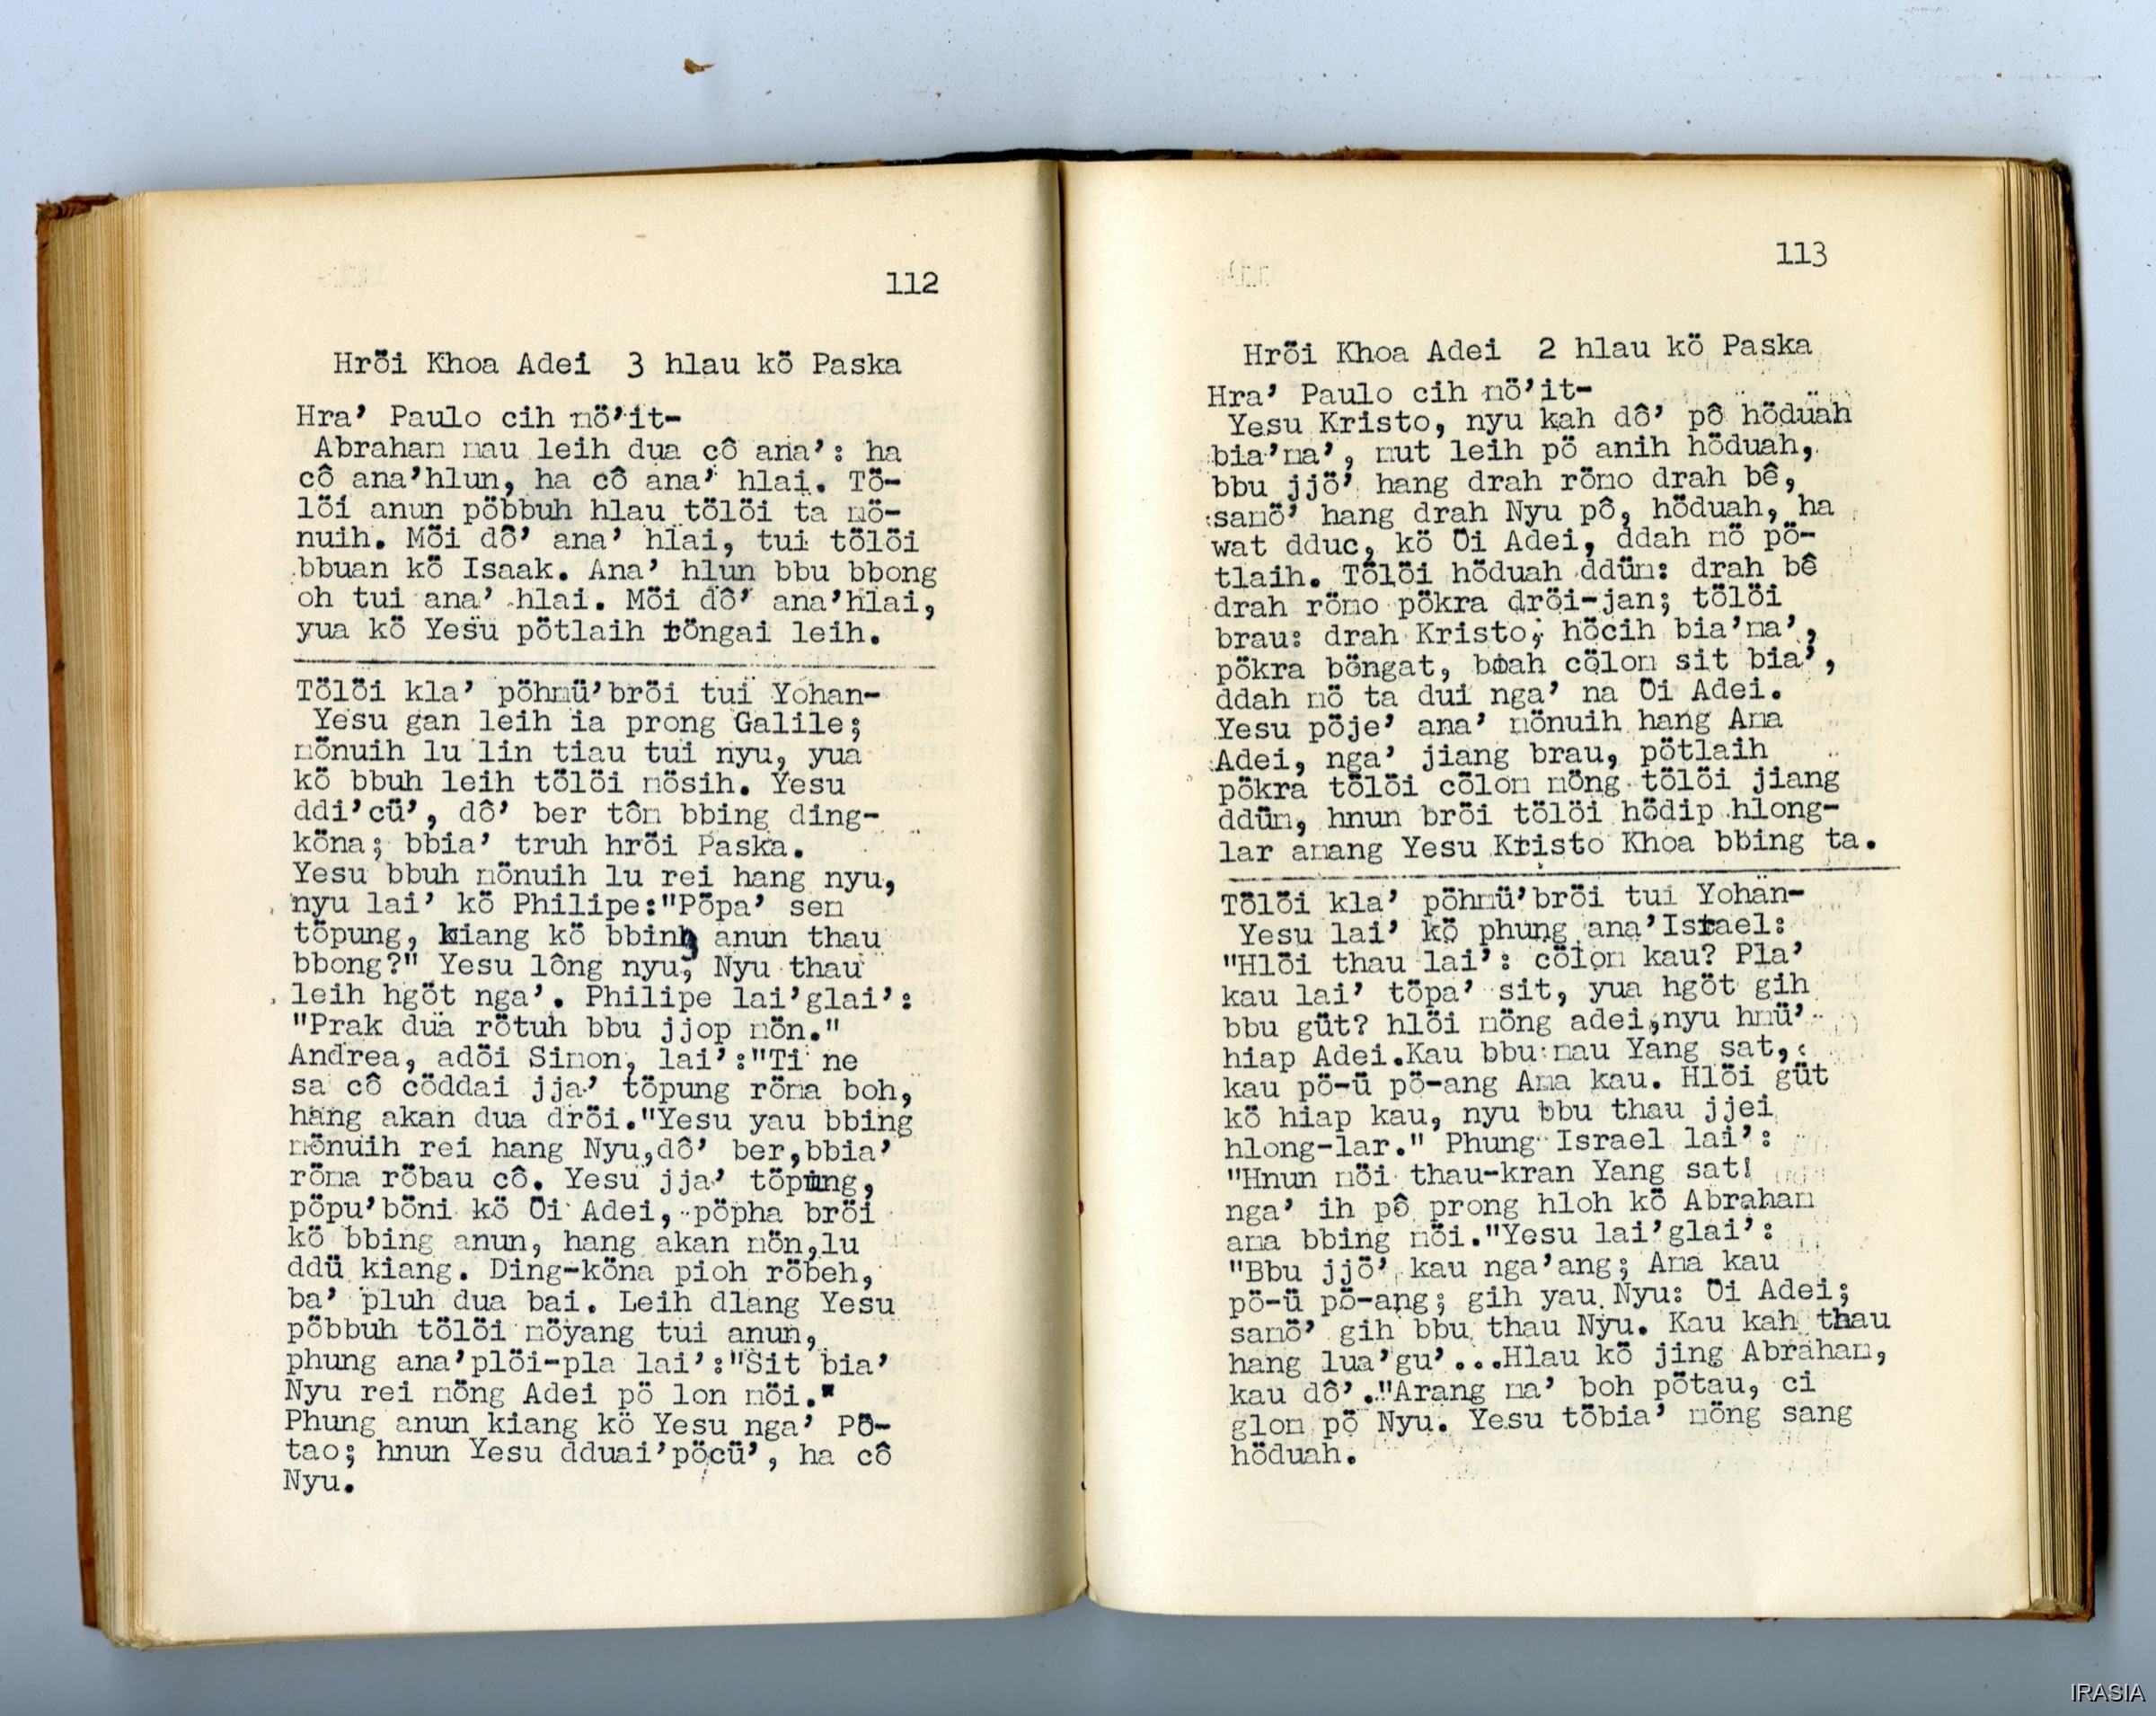 112
Hröi Khoa Adei 3 hlau kö Paska
Hra’ Paulo cih mö’it-
Abraham mau leih dua cô ana’: ha
cô ana’hlun, ha cô ana’ hlai. Tö-
löi anun pöbbuh hlau tölöi ta mö-
nuih. Möi dô’ ana’ hlai, tui tölöi
bbuan kö Isaak. Ana’ hlun bbu bbong
oh tui ana’ hlai. Möi dô’ ana’hlai,
yua kö Yesu pötlaih röngai leih.
Tölöi kla’ pöhmü’bröi tui Yohan-
Yesu gan leih ia prong Galile;
mönuih lu lin tiau tui nyu, yua
kö bbuh leih tölöi mösih. Yesu
ddi’cü’, dô’ ber tôm bbing ding-
köna; bbia’ truh hröi Paska.
Yesu bbuh mönuih lu rei hang nyu,
nyu lai’ kö Philipe:"Pöpa’ sem
töpung, kiang kö bbing anun thau
bbong?" Yesu lông nyu, Nyu thau
leih hgöt nga’. Philipe lai’glai’:
"Prak dua rötuh bbu jjop mön."
Andrea, adöi Simon, lai’:"Ti ne
sa cô cöddai jja’ töpung röma boh,
hang akan dua dröi."Yesu yau bbing
mönuih rei hang Nyu,dô’ ber,bbia’
röma röbau cô. Yesu jja’ töpung,
pöpu’böni kö Öi Adei, pöpha bröi
kö bbing anun, hang akan mön,lu
ddü kiang. Ding-köna pioh röbeh,
ba’ pluh dua bai. Leih dlang Yesu
pöbbuh tölöi möyang tui anun,
phung ana’plöi-pla lai’:"Sit bia’
Nyu rei möng Adei pö lon möi."
Phung anun kiang kö Yesu nga’ Pö-
tao; hnun Yesu dduai’pöcü’, ha cô
Nyu.
113
Hröi Khoa Adei 2 hlau kö Paska
Hra’ Paulo cih mö’it-
Yesu Kristo, nyu kah dô’ pô höduah
bia’ma’, mut leih pö anih höduah,
bbu jjö’ hang drah römo drah bê,
samö’ hang drah Nyu pô, höduah, ha
wat dduc, kö Öi Adei, ddah mö pö-
tlaih. Tölöi höduah ddüm: drah bê
drah römo pökra dröi-jan; tölöi
brau: drah Kristo; höcih bia’ma’,
pökra böngat, boah cölom sit bia’,
ddah mö ta dui nga’ na Öi Adei.
Yesu pöje’ ana’ mönuih hang Ama
Adei, nga’ jiang brau, pötlaih
pökra tölöi cölom möng tölöi jiang
ddüm, hnun bröi tölöi hödip hlong-
lar amang Yesu Kristo Khoa bbing ta.
Tölöi kla’ pöhmü’bröi tui Yohan-
Yesu lai’ kö phung ana’Israel:
"Hlöi thau lai’: cölom kau? Pla’
kau lai’ töpa’ sit, yua hgöt gih
bbu güt? hlöi möng adei,nyu hmü’
hiap Adei.Kau bbu mau Yang sat,
kau pö-ü pö-ang Ama kau. Hlöi güt
kö hiap kau, nyu bbu thau jjei
hlong-lar." Phung Israel lai’:
"Hnun möi thau-kran Yang sat!
nga’ ih pô prong hloh kö Abraham
ama bbing möi."Yesu lai’glai’:
"Bbu jjö’ kau nga’ang; Ama kau
pö-ü pö-ang; gih yau Nyu: Öi Adei;
samö’ gih bbu thau Nyu. Kau kah thau
hang lua’gu’...Hlau kö jing Abraham,
kau dô’."Arang ma’ boh pötau, ci
glom pö Nyu. Yesu töbia’ möng sang
höduah.
IRASIA